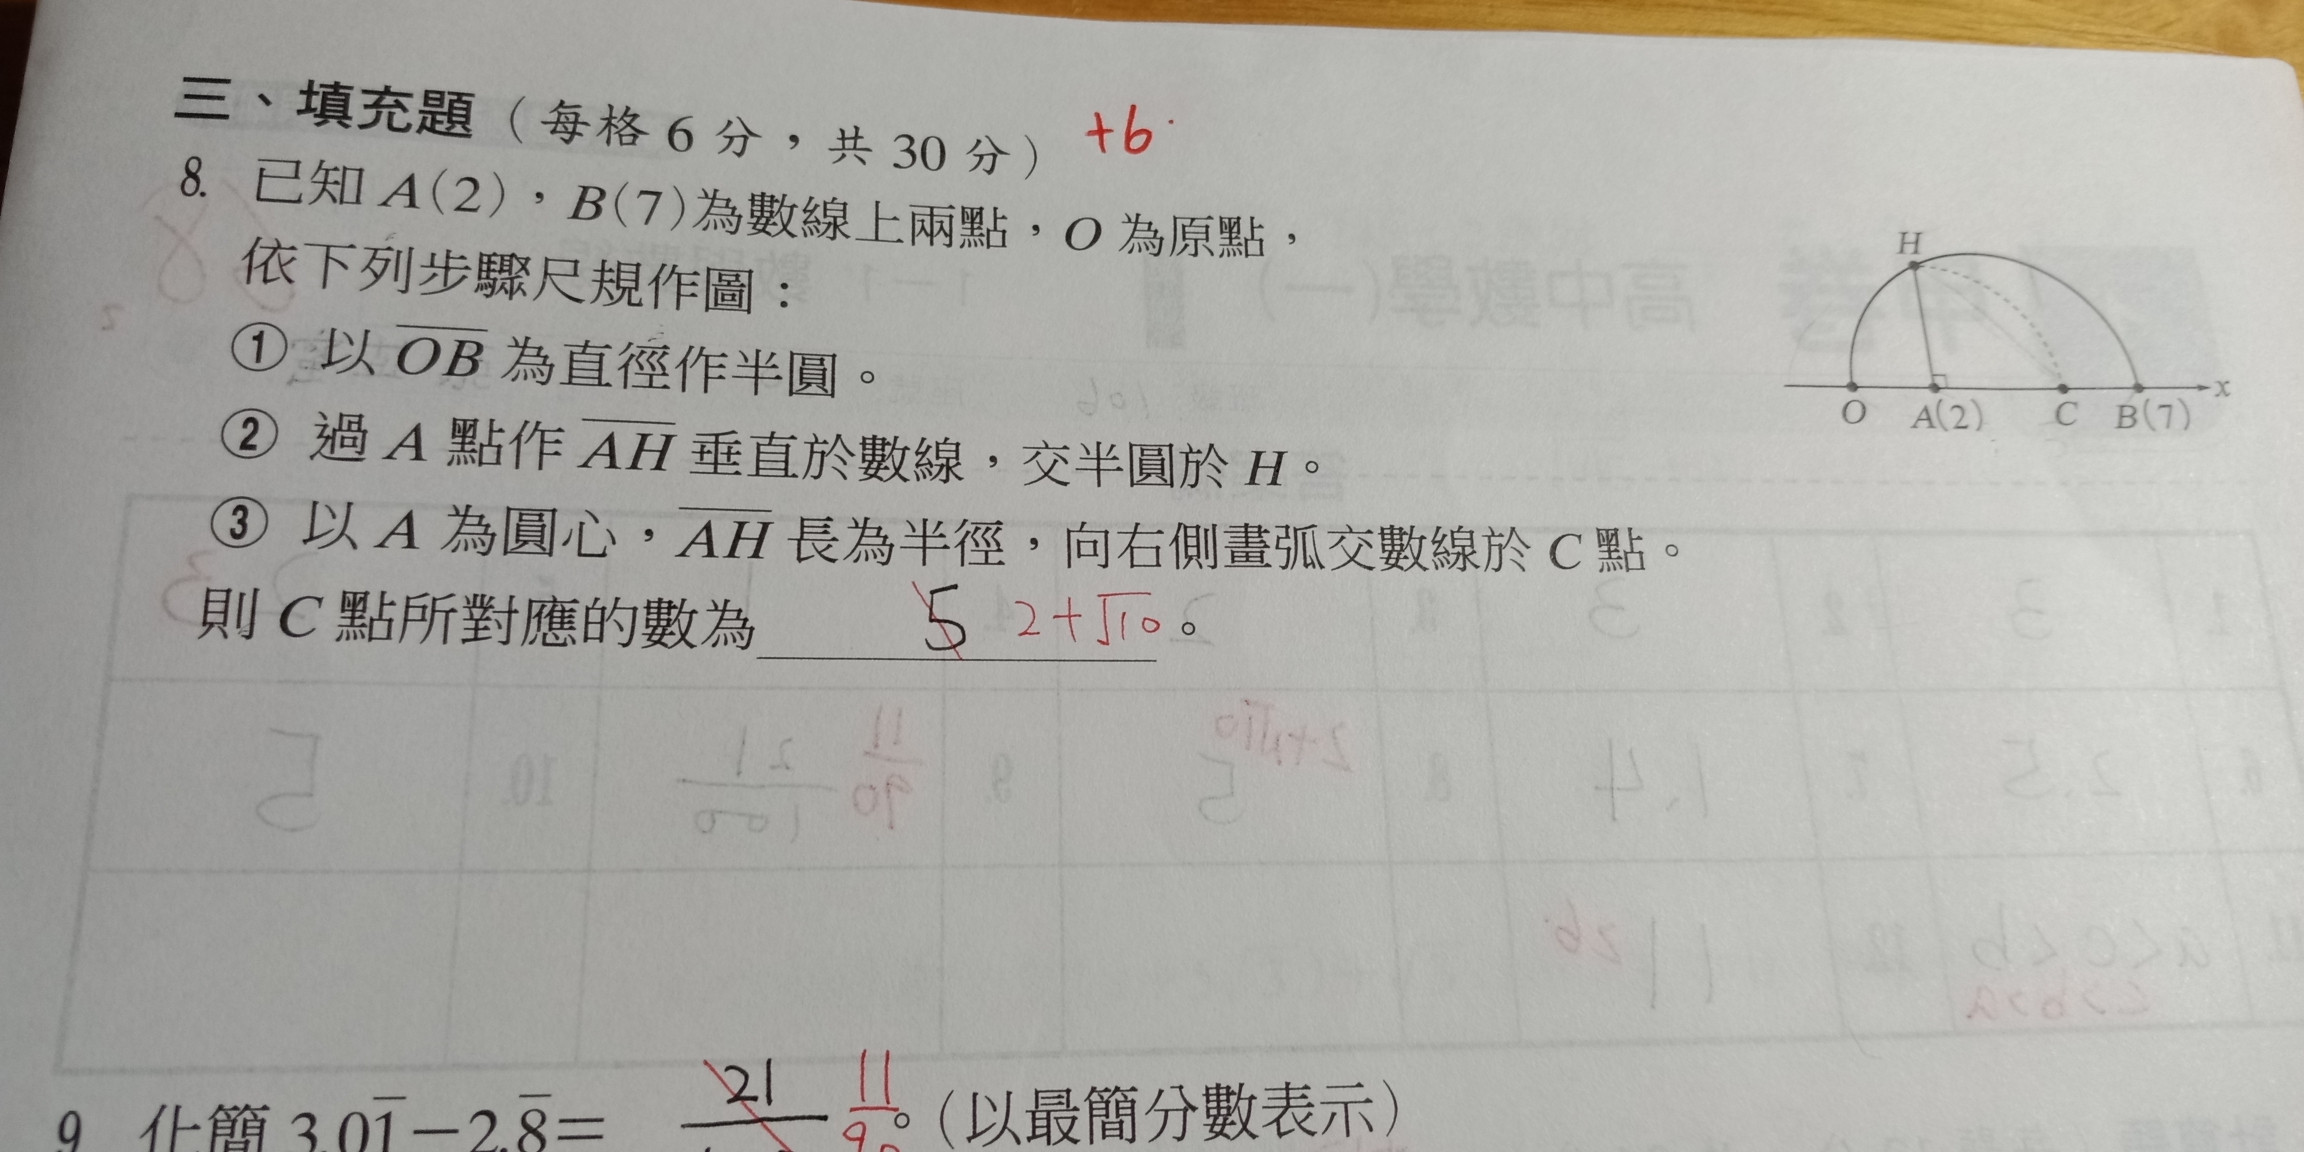 三、填充題（每格 6 分，共 30 分） +6
8. 已知 A(2)，B(7)為數線上兩點，O 為原點，
依下列步驟尺規作圖：
① 以 OB 為直徑作半圓。
② 過 A 點作 AH 垂直於數線，交半圓於 H。
③ 以 A 為圓心，AH 長為半徑，向右側畫弧交數線於 C 點。
則 C 點所對應的數為 5 2+√10。
H
O A(2) C B(7) x
9 化簡 3.01̅−2.8̅＝ 21 11/90。（以最簡分數表示）